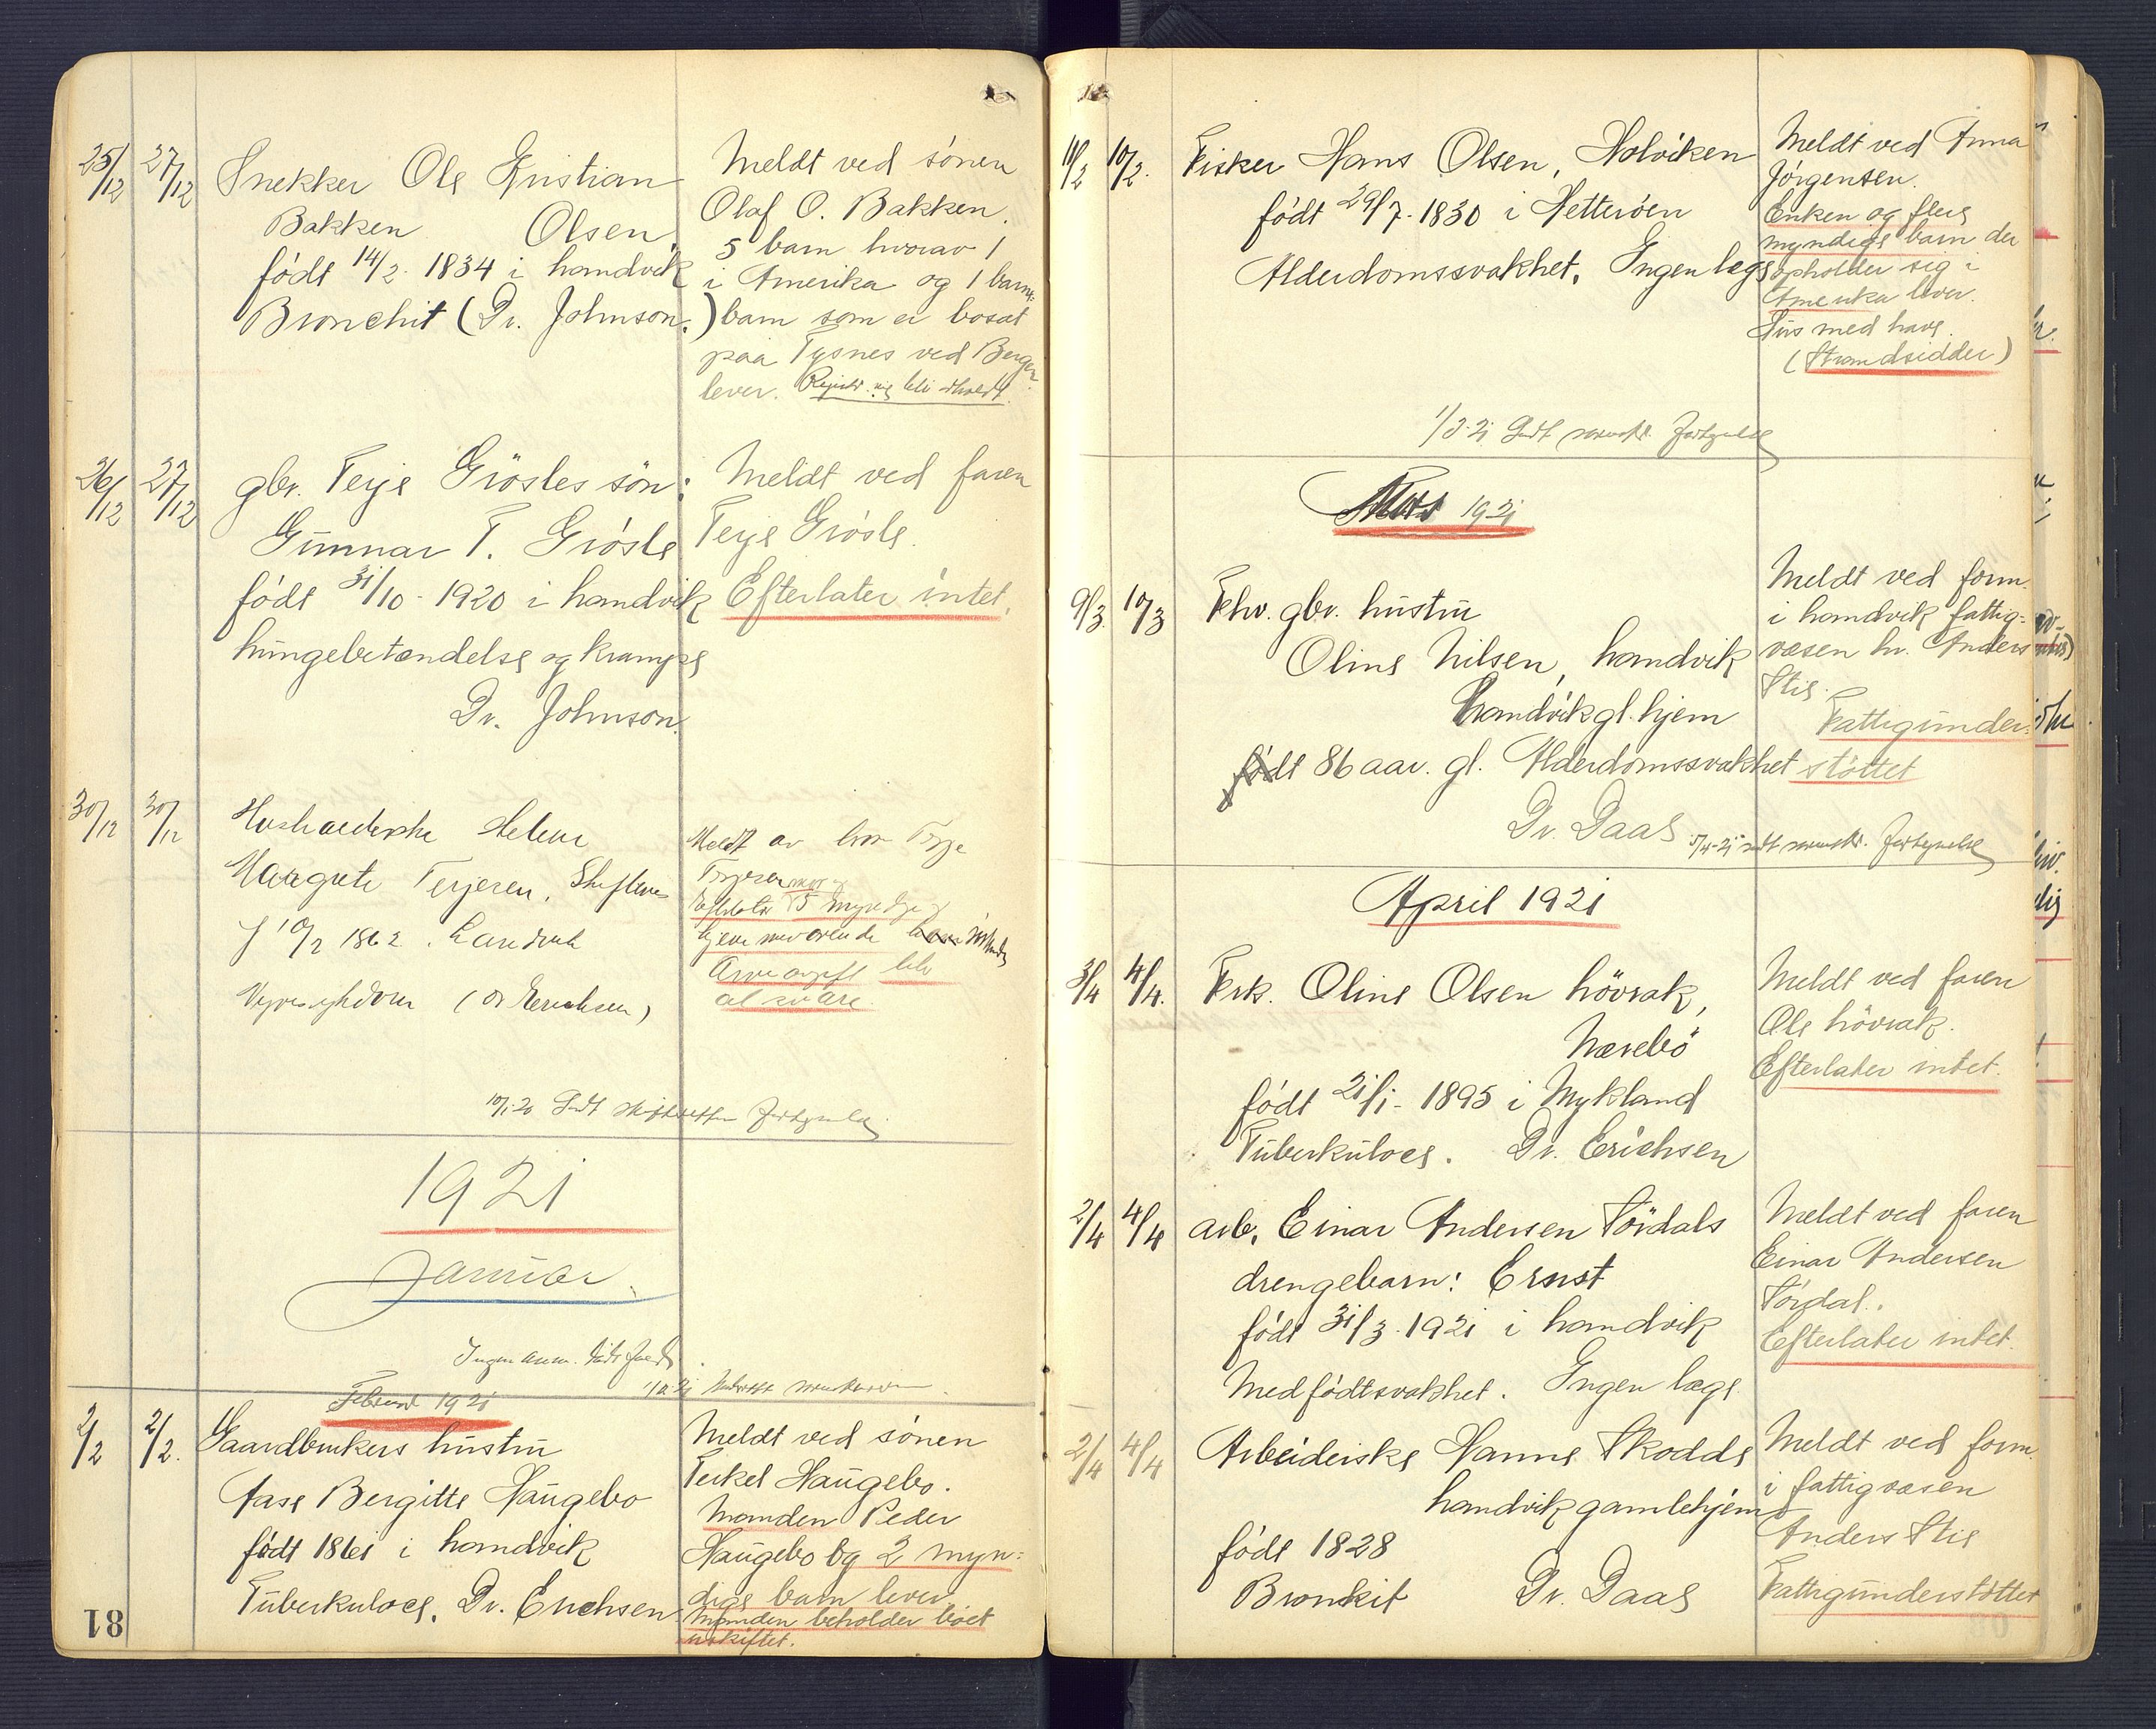 25/12 27/12 Snekker Ole Kristian
Bakken Olsen,
født 14/2. 1834 i Landvik
Bronchit (Dr. Johnson.)
Meldt ved sönen
Olaf O. Bakken.
5 barn hvorav 1
i Amerika og 1 barne-
barn som er bosat
paa Tysnes ved Bergen
lever.
26/12 27/12 gbr. Terje Grösles sön:
Gunnar T. Grösle
født 31/10 - 1920 i Landvik
Lungebetændelse og krampe
Dr. Johnson.
Meldt ved faren
Terje Grösle.
Efterlater intet.
30/12 30/12 Husholderske Helene
Margrete Terjesen,
f 10/2 1862. Landvik
(Dr Erichsen)
Meldt av bror Terje
Terjesen
Efterlater 5 myndige
hjemmeværende
Arveavgift blir
at svare.
10/1-20 Sendt skifteretten fortegnelse
1921
Januar.
Ingen anm. dødsfald.
Februar 1921
2/2 2/2. Gaardbrukers hustru
Aase Bergitte Haugebo
født 1861 i Landvik
Tuberkulose. Dr. Erichsen
Meldt ved sönen
Terkel Haugebo.
Manden Peder
Haugebo og 2 myn-
dige barn lever
Manden beholder boet
uskiftet.
81
10/2 10/2. Fisker Hans Olsen, Holviken
født 29/7. 1830 i Hetteröen
Alderdomssvakhet. Ingen læge
Meldt ved Anna
Jörgensen.
Enken og flere
myndige barn der
opholder sig i
Amerika lever.
Hus med have.
(Strandsidder)
1/3-21 Sendt sorenskr. fortegnelse
Mars 1921
9/3. 10/3 Fhv. gbr. hustru
Oline Nilsen, Landvik
Landvik gl. hjem
født 86 aar. gl. Alderdomssvakhet
Dr. Daae
Meldt ved form.
i Landvik fattig-
væsen hr. Anders
Stie.
Fattigunder-
støttet
5/4-21 sendt sorenskr. fortegnelse
April 1921
3/4 4/4. Frk. Oline Olsen Løvrak,
Nærebø
født 21/1- 1895 i Mykland
Tuberkulose. Dr. Erichsen
Meldt ved faren
Ole Løvrak.
Efterlater intet.
2/4 4/4 arb. Einar Andersen Tördals
drengebarn: Ernst
født 31/3. 1921 i Landvik
Medfødt svakhet. Ingen læge
Meldt ved faren
Einar Andersen
Tördal.
Efterlater intet.
2/4 4/4 Arbeiderske Hanne Skodde
Landvik gamlehjem
født 1828
Bronkit Dr. Daae
Meldt ved form.
i fattigvæsen
Anders Stie
Fattigunderstøttet